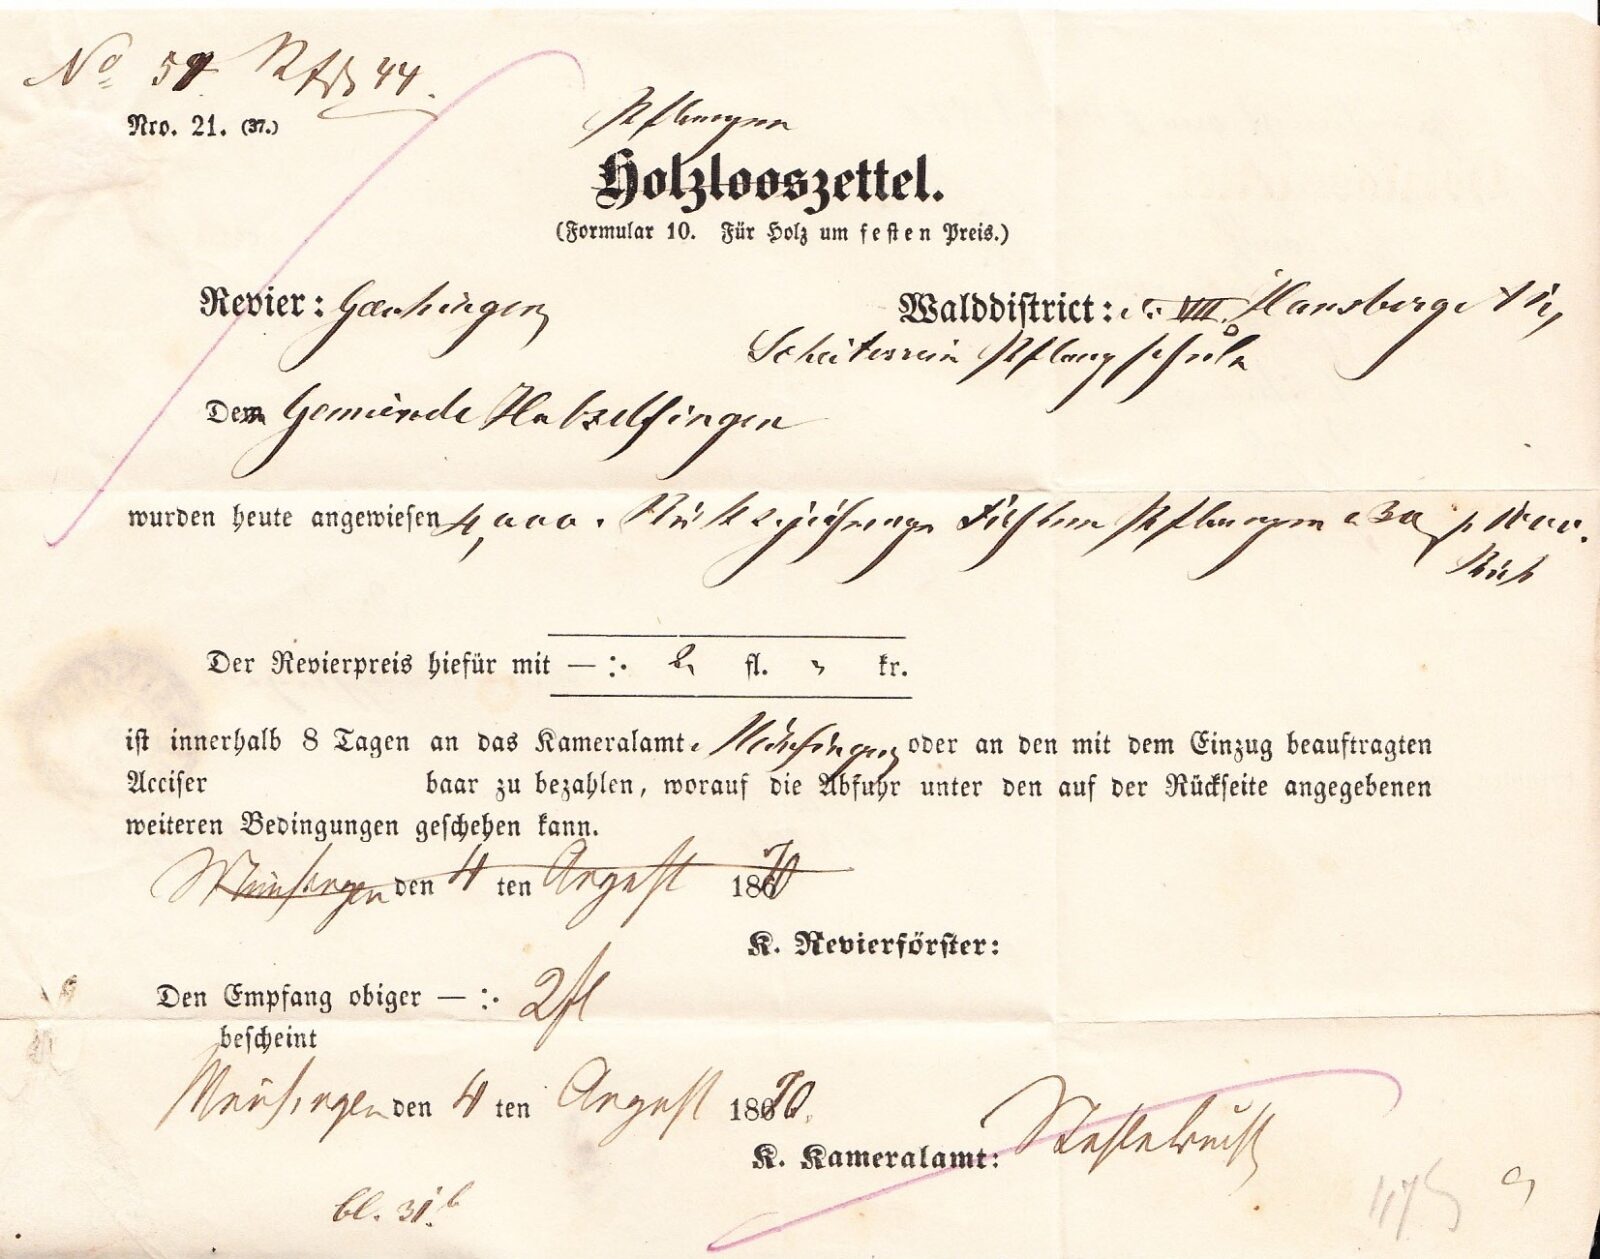 No 59
Nro. 21. (37.)
Pflanzen
Holzlooszettel.
(Formular 10. Für Holz um festen Preis.)
Revier: Walddistrict: VIII.
Pflanzschule
Der Gemeinde
wurden heute angewiesen 4,000. Stük 2.jährige Fichten Pflanzen a 30 p 1000.
Stük
Der Revierpreis hiefür mit — :· 2 fl. " kr.
ist innerhalb 8 Tagen an das Kameralamt Münsingen oder an den mit dem Einzug beauftragten
Acciser baar zu bezahlen, worauf die Abfuhr unter den auf der Rückseite angegebenen
weiteren Bedingungen geschehen kann.
Münsingen den 4 ten August 1870
K. Revierförster:
Den Empfang obiger — :· 2 fl
bescheint
Münsingen den 4 ten August 1870.
K. Kameralamt:
bl. 31.b